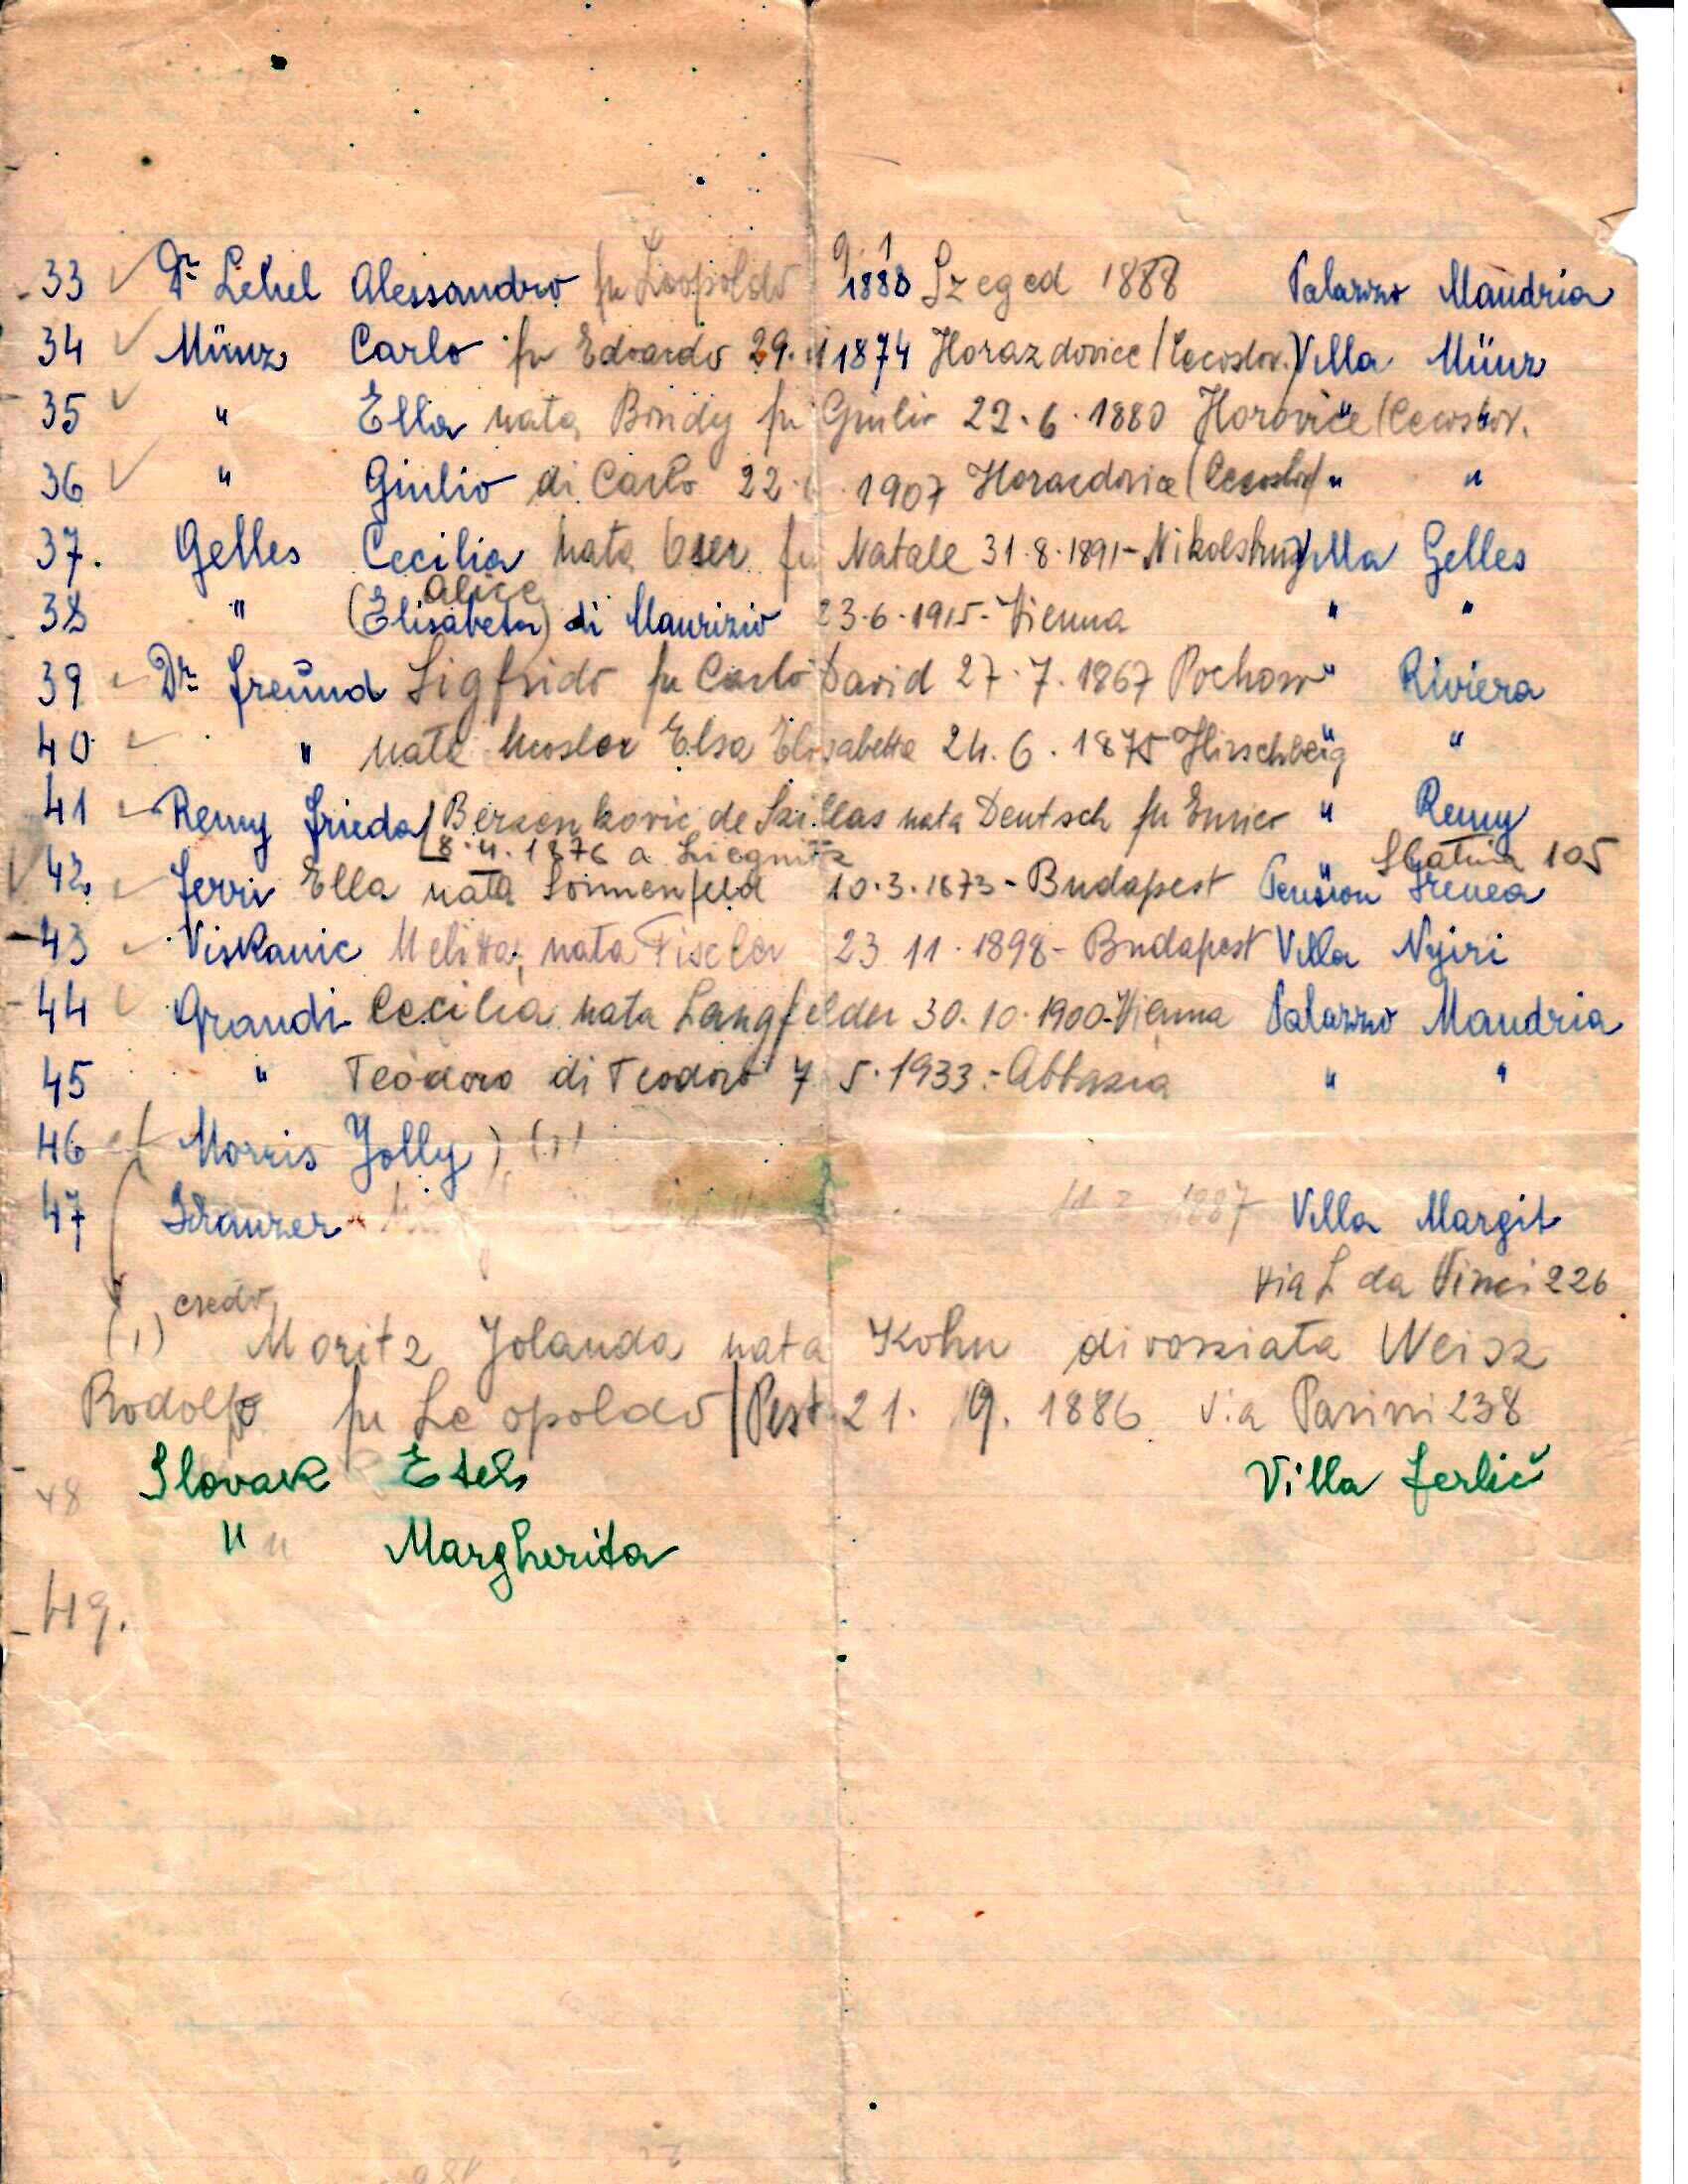 9. 1
33 Dr Lehel Alessandro fu Leopoldo 1888 Szeged 1888 Palazzo Mandria
34 Münz Carlo fu Edoardo 29. 1874 Horazdovice (Cecoslov.) Villa Münz
35 " Ella nata Bondy fu Giulio 22.6.1880 Horovice (Cecoslov. " "
36 " Giulio di Carlo 22. 1907 Horazdovice (Cecoslov) " "
37. Gelles Cecilia nata Oser fu Natale 31.8.1891 - Nikolsburg Villa Gelles
Alice
38 " (Elisabeta) di Maurizio 23.6.1915 - Vienna " "
39 Dr Freund Sigfrido fu Carlo David 27.7.1867 " Riviera
40 " nata Elsa Elisabetta 24.6.1875 Hirschberg " "
41 Remy Frieda (de nata Deutsch fu Enrico " Remy
8.4.1876 a Liegnitz Slatina 105
42. Jerri Ella nata Sonnenfeld 10.3.1873 - Budapest Pension Irenea
43 Viskanic Melitta, nata Fischer 23 11.1898 - Budapest Villa Nyiri
44 Grandi Cecilia nata Langfelder 30.10.1900 - Vienna Palazzo Mandria
45 " Teodoro di Teodoro 7 5.1933 - Abbazia " "
46 Morris Jolly ) (1)
47 1887 Villa Margit
Via L da Vinci 226
credo
(1) Moritz Jolanda nata Kohn divorziata Weisz
Rodolfo fu Leopoldo / Pest 21. 9. 1886 Via Parini 238
48 Slovak Etel Villa Jerlič
" " Margherita
49.